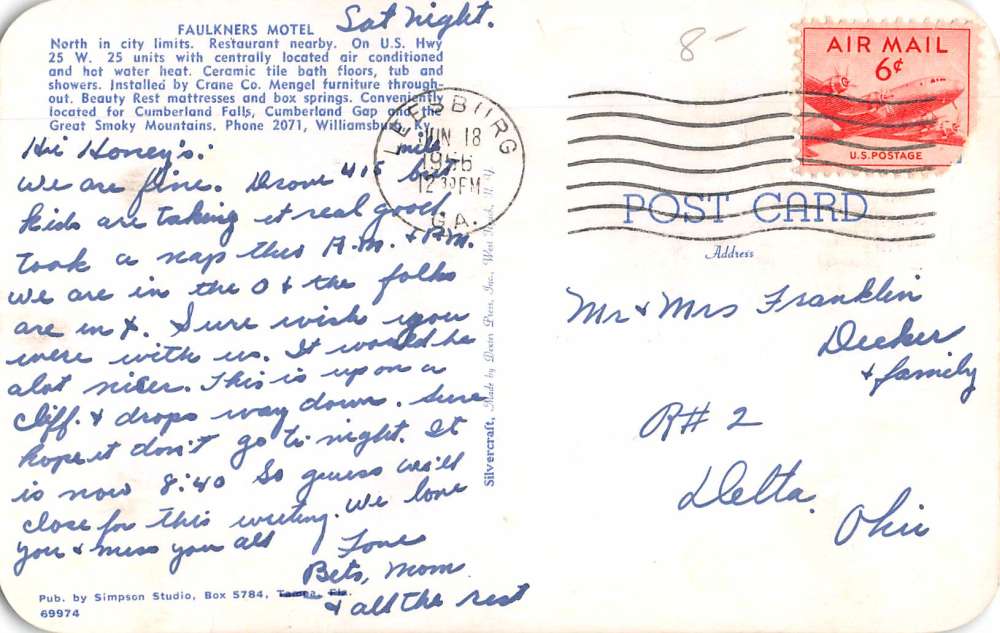 Sat Night.
FAULKNERS MOTEL
North in city limits. Restaurant nearby. On U.S. Hwy
25 W. 25 units with centrally located air conditioned
and hot water heat. Ceramic tile bath floors, tub and
showers. Installed by Crane Co. Mengel furniture through
out. Beauty Rest mattresses and box springs. Conveniently
located for Cumberland Falls, Cumberland Gap and the
Great Smoky Mountains. Phone 2071, Williamsburg, Ky.
Hi Honey's:
We are fine. Drove 415 mile but
kids are taking it real good
Took a nap this A.M. & P.M.
We are in the O & the folks
are in X. Sure wish you
were with us. It would be
alot nicer. This is up on a
cliff. & drops way down. Sure
hope it don't go to night. It
is now 8:40 So guess we'll
close for this writing. We love
you & miss you all
Love
Bets, Mom
& all the rest
Pub. by Simpson Studio, Box 5784, Tampa, Fla.
69974
Silvercraft, Made by Dexter Press, Inc., West Nyack, N.Y.
LEESBURG
JUN 18
1956
12 30 PM
GA.
8-
AIR MAIL
6¢
U.S. POSTAGE
POST CARD
Address
Mr & Mrs Franklin
Decker
& family
R# 2
Delta,
Ohio